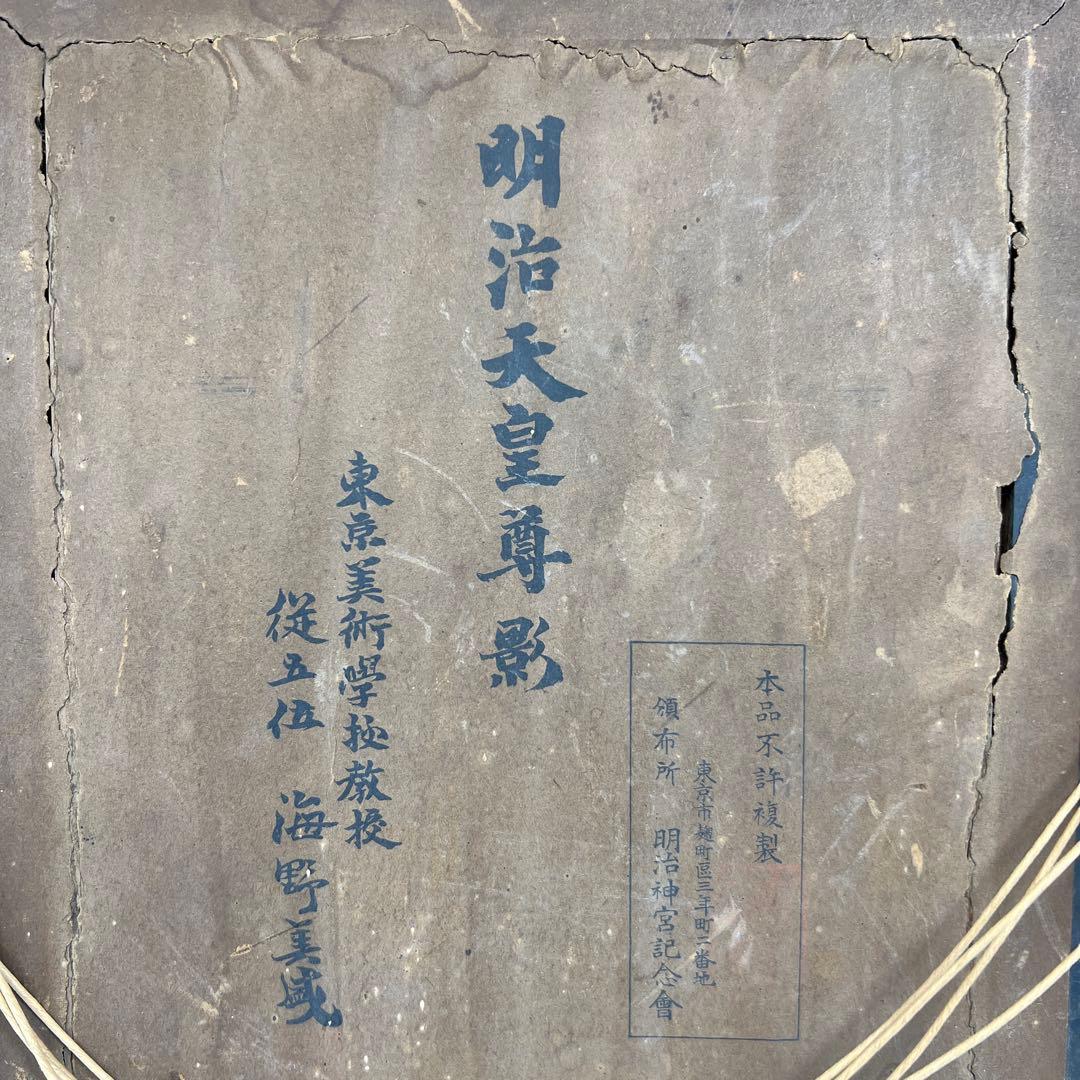 明治天皇尊影
東京美術學校教授
従五位 海野美盛
本品不許複製
東京市麹町區三年町二番地
頒布所 明治神宮記念會